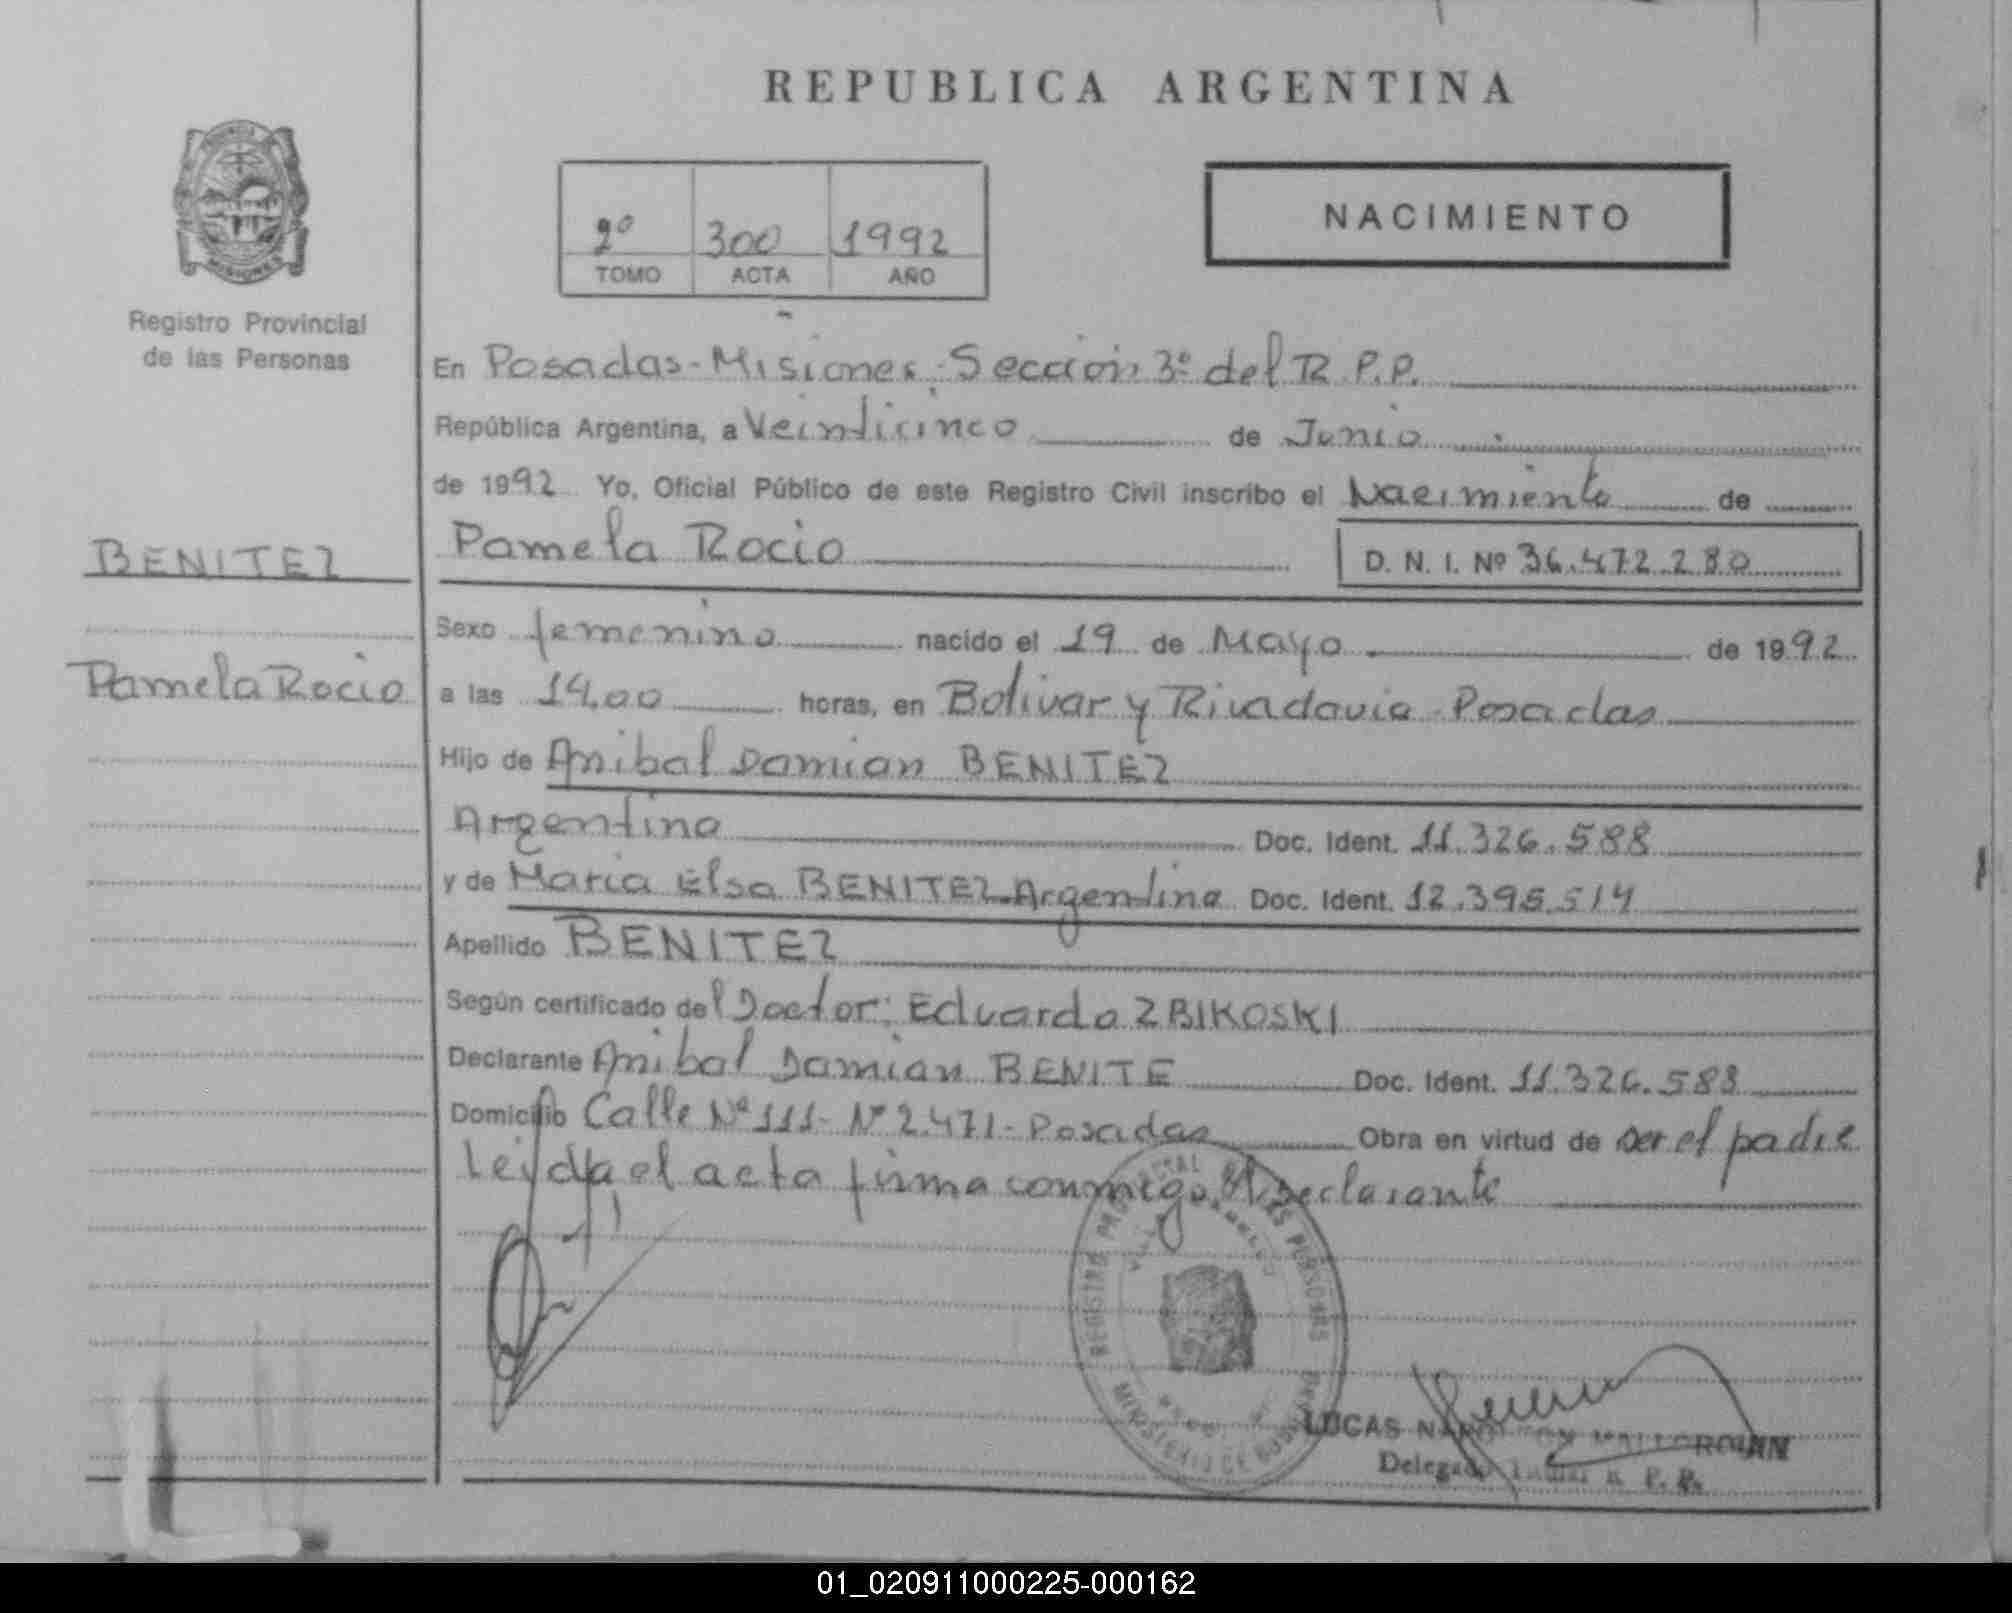 REPUBLICA ARGENTINA
PROVINCIA
MISIONES
Registro Provincial
de las Personas
2º 300 1992
TOMO ACTA AÑO
NACIMIENTO
En Posadas-Misiones-Sección 3ª del R.P.P.
República Argentina, a Veinticinco de Junio
de 1992 Yo, Oficial Público de este Registro Civil inscribo el Nacimiento de
BENITEZ
Pamela Rocio
Pamela Rocio D. N. I. Nº 36.472.280
Sexo femenino nacido el 19 de Mayo de 1992
a las 14,00 horas, en Bolivar y Rivadavia-Posadas
Hijo de Anibal Damian BENITEZ
Argentina Doc. Ident. 11.326.588
y de Maria Elsa BENITEZ-Argentina Doc. Ident. 12.395.514
Apellido BENITEZ
Según certificado del Doctor: Eduardo ZBIKOSKI
Declarante Anibal Damian BENITE Doc. Ident. 11.326.588
Domicilio Calle Nº 111-Nº 2.471-Posadas Obra en virtud de ser el padre
Leida el acta firma conmigo el declarante
REGISTRO PROVINCIAL DE LAS PERSONAS
MINISTERIO DE
LUCAS
Delegado R. P. P.
01_020911000225-000162